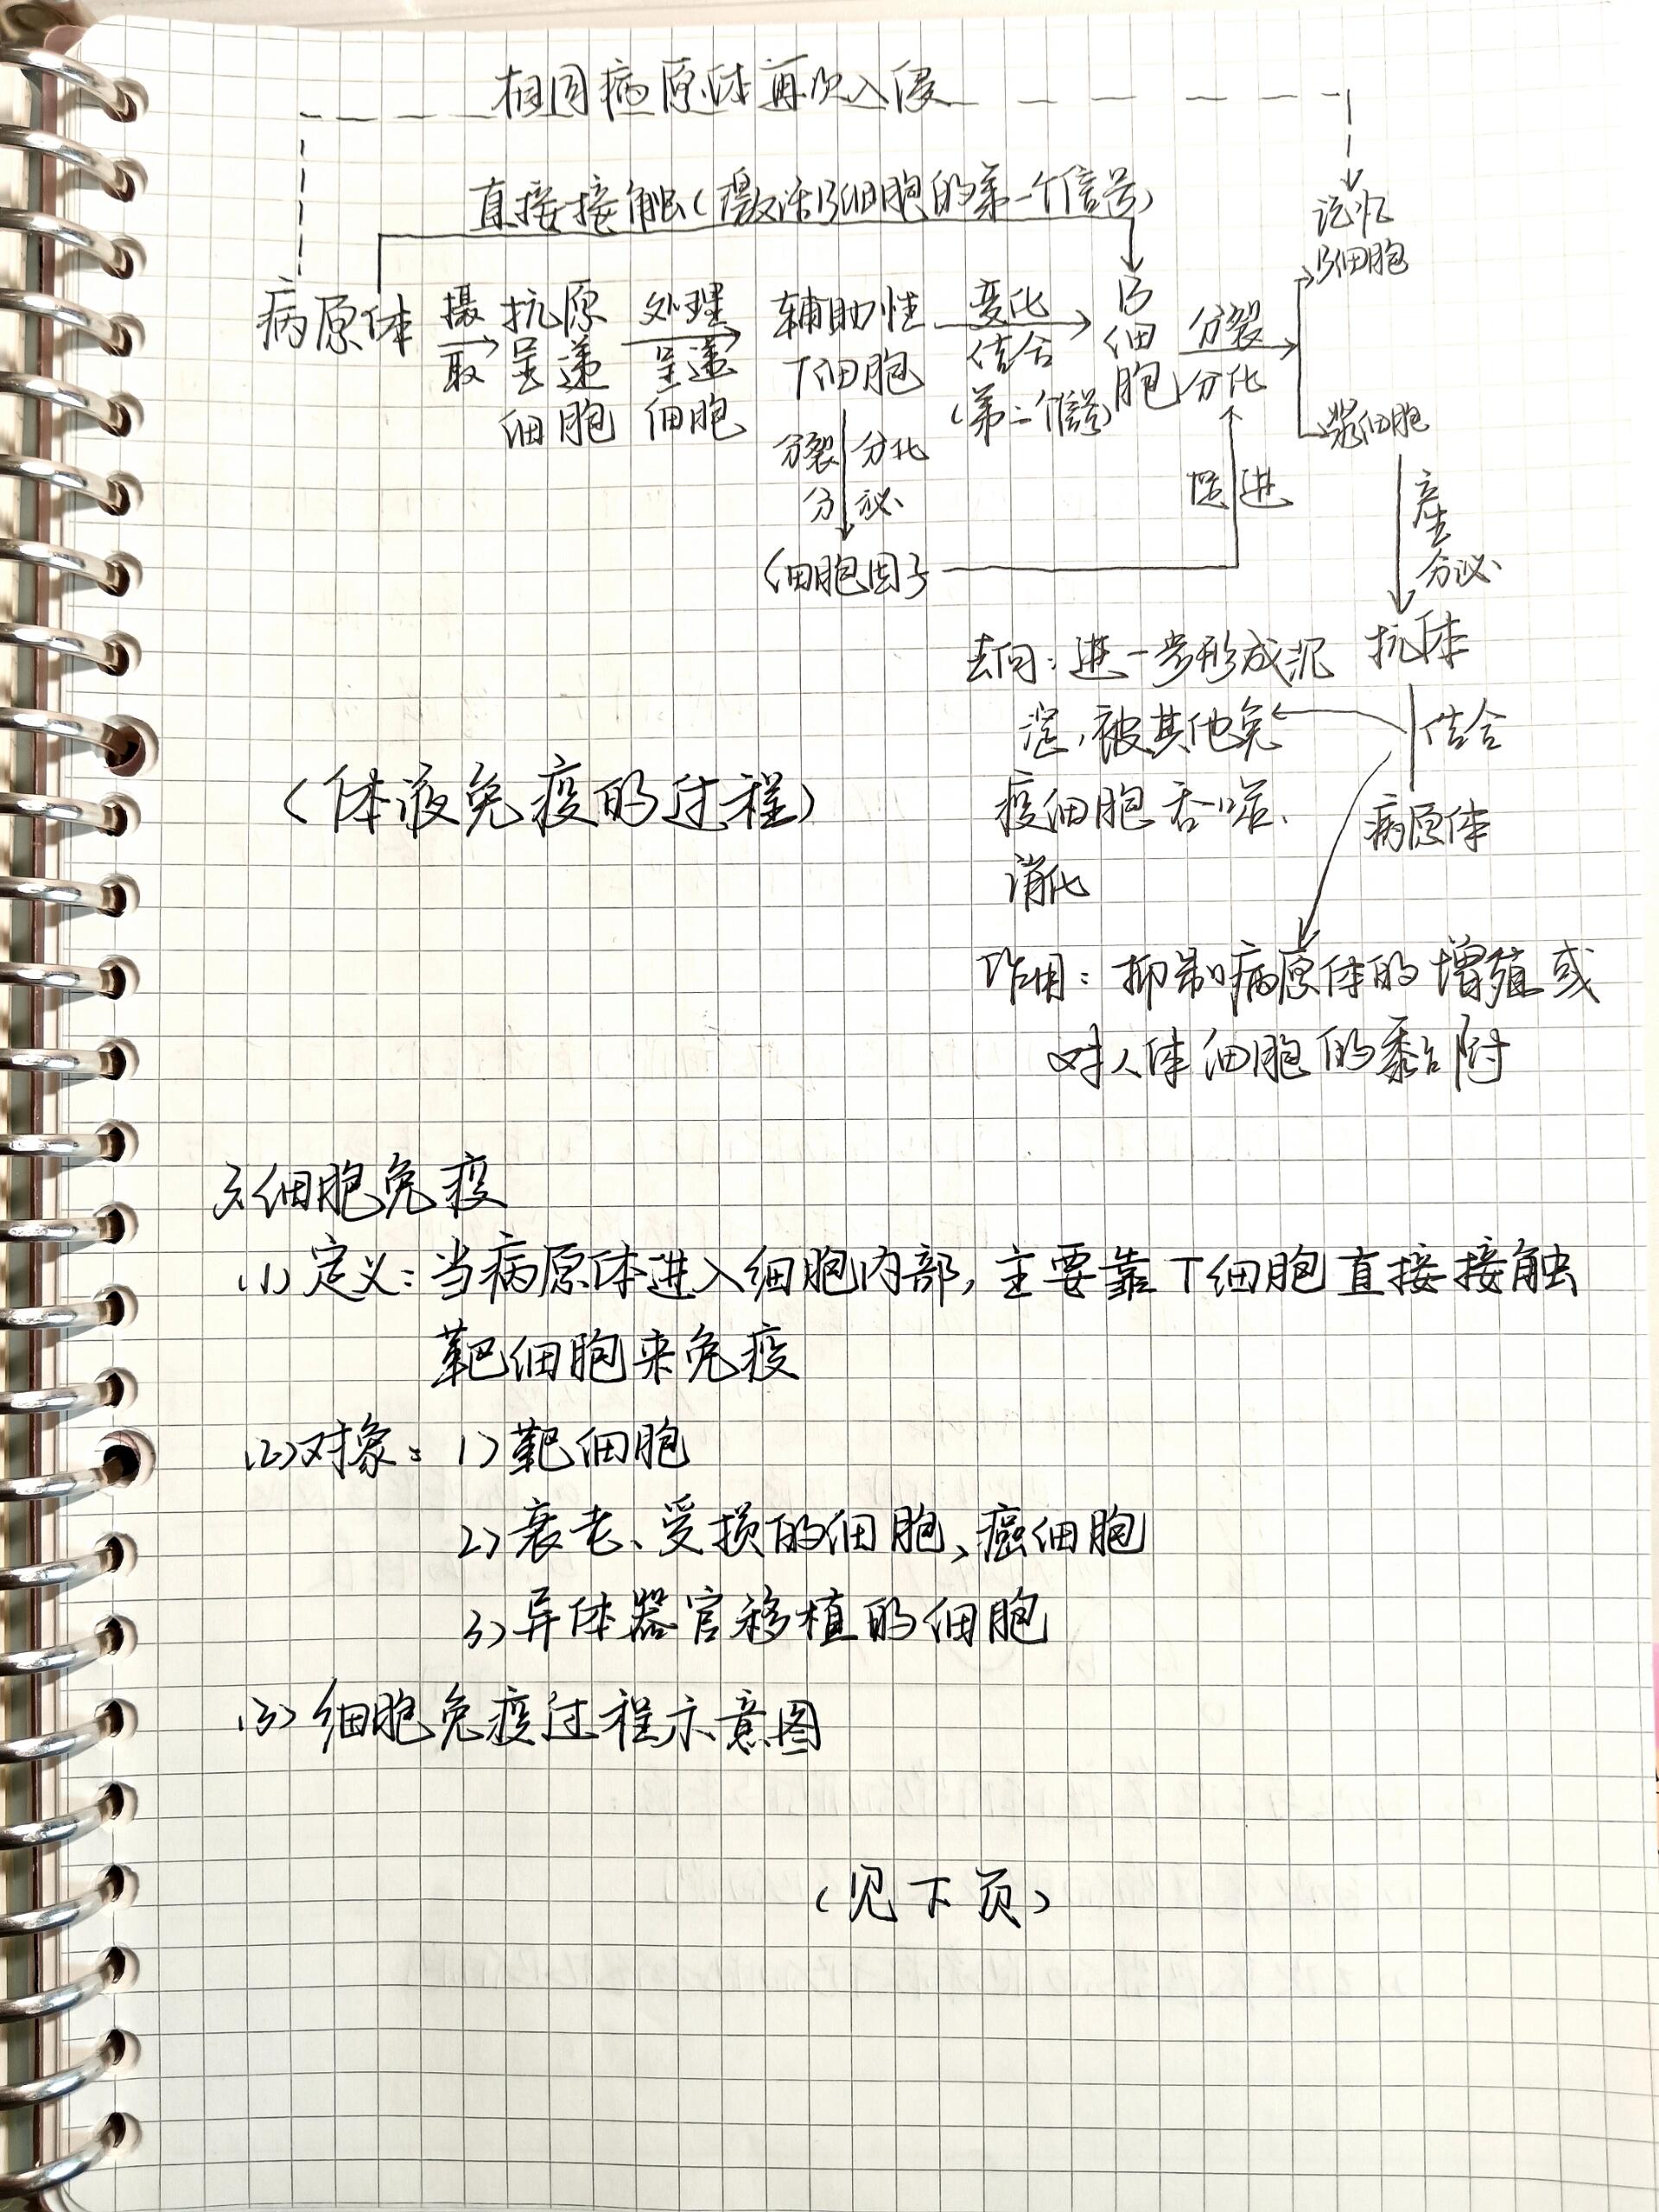 相同病原体再次入侵
直接接触(激活B细胞的第一个信号)
记忆
B细胞
病原体
摄
取
抗原
呈递
细胞
处理
呈递
细胞
辅助性
T细胞
变化
结合
(第二个信号)
B
细
胞
分裂
分化
浆细胞
分裂 分化
分泌
促进
产生
分泌
细胞因子
去向:进一步形成沉
淀,被其他免
疫细胞吞噬、
消化
抗体
结合
病原体
(体液免疫的过程)
作用:抑制病原体的增殖或
对人体细胞的黏附
3.细胞免疫
(1)定义:当病原体进入细胞内部,主要靠T细胞直接接触
靶细胞来免疫
(2)对象:1)靶细胞
2)衰老、受损的细胞、癌细胞
3)异体器官移植的细胞
(3)细胞免疫过程示意图
(见下页)